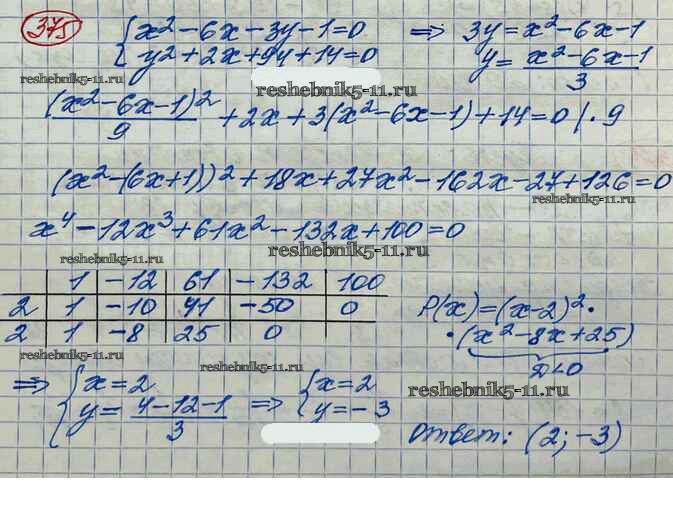 375 { x² - 6x - 3y - 1 = 0 ⇒ 3y = x² - 6x - 1
y² + 2x + 9y + 14 = 0 y = (x² - 6x - 1)/3
reshebnik5-11.ru
reshebnik5-11.ru
(x² - 6x - 1)²/9 + 2x + 3(x² - 6x - 1) + 14 = 0 | · 9
(x² - (6x + 1))² + 18x + 27x² - 162x - 27 + 126 = 0
reshebnik5-11.ru
x⁴ - 12x³ + 61x² - 132x + 100 = 0
reshebnik5-11.ru
reshebnik5-11.ru
1 -12 61 -132 100
2 1 -10 41 -50 0 P(x) = (x - 2)² ·
2 1 -8 25 0 · (x² - 8x + 25)
reshebnik5-11.ru
reshebnik5-11.ru
D < 0
reshebnik5-11.ru
⇒ { x = 2 ⇒ { x = 2
y = (4 - 12 - 1)/3 y = -3
Ответ: (2; -3)